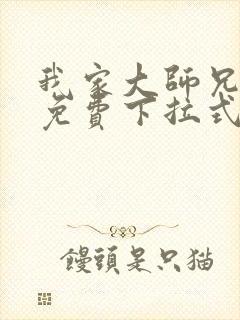 我家大師兄
免費下拉式
饅頭是只猫